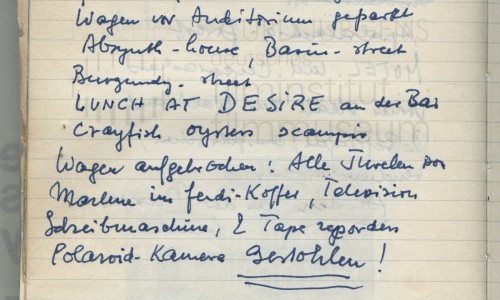 Wagen vor Auditorium geparkt
Absynth-house, Basin-street
Burgundy-street
LUNCH AT DESIRE an der Bar
Crayfish oysters scampis
Wagen aufgebrochen! Alle Juwelen von
Marlene im Ferdi-Koffer, Television
Schreibmaschine, 2 Tape recorders
Polaroid-Kamera Gestohlen!